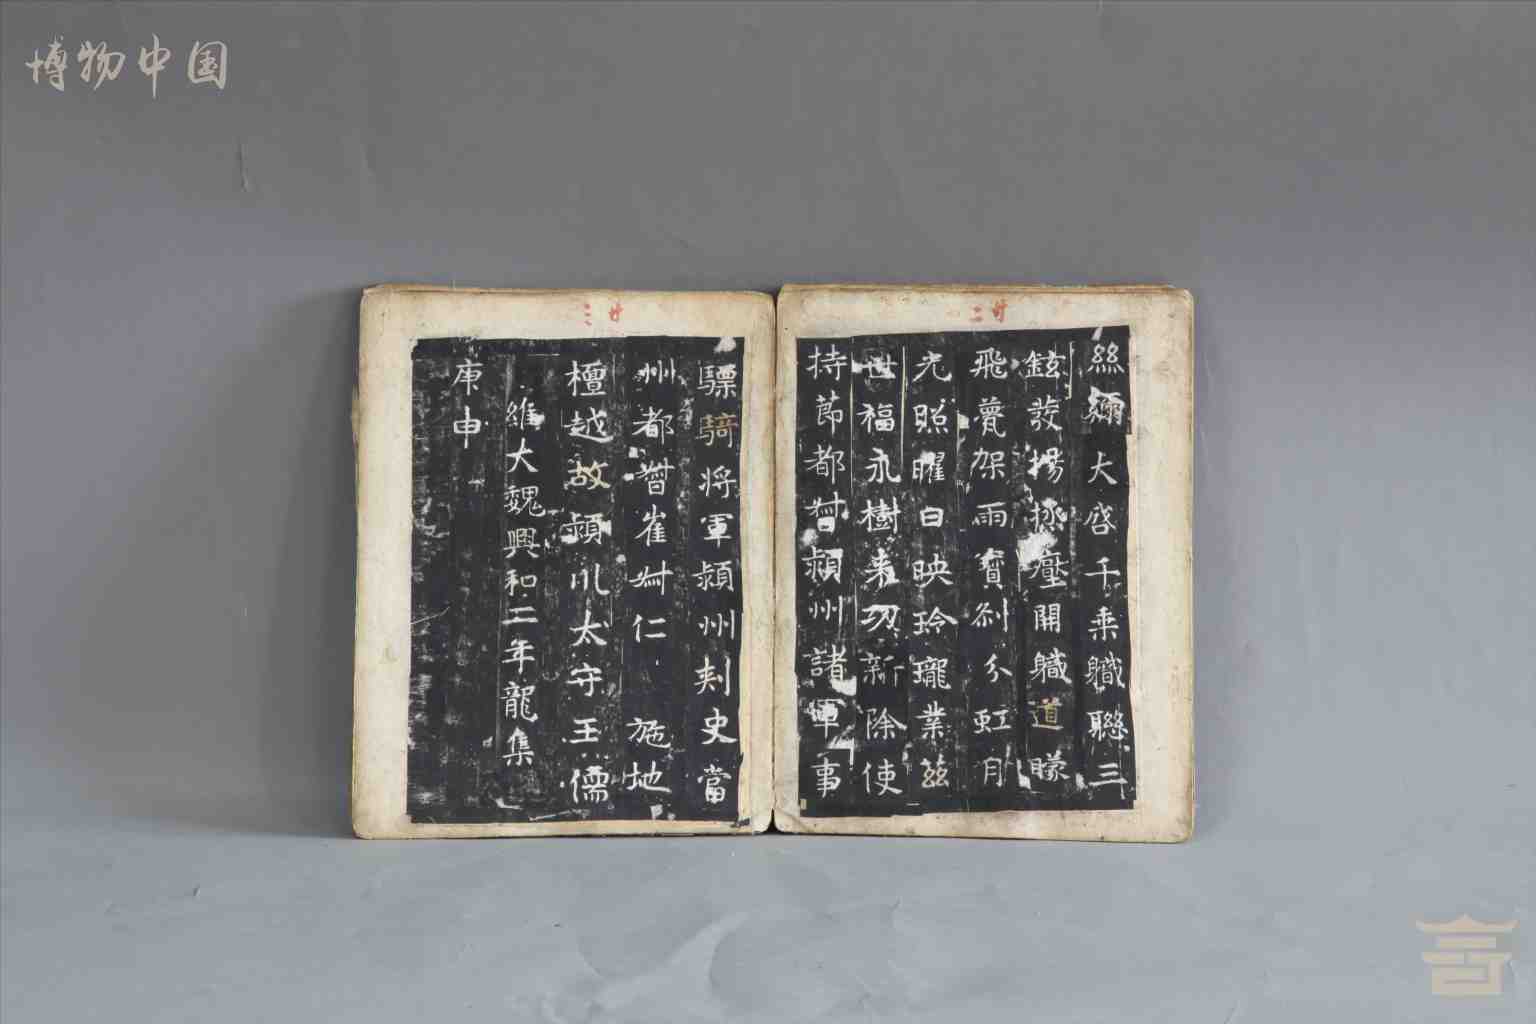 博物中国
廿二
絲綸大啓千乘職聯三
鉉發揚拯壓開職道矇
飛甍架雨寶刹分虹月
光照曜日映玲瓏業茲
世福永樹来功新除使
持節都督潁州諸軍事
廿三
驃騎將軍潁州刾史當
州都督崔叔仁 施地
檀越故潁川太守王儒
維大魏興和二年龍集
庚申